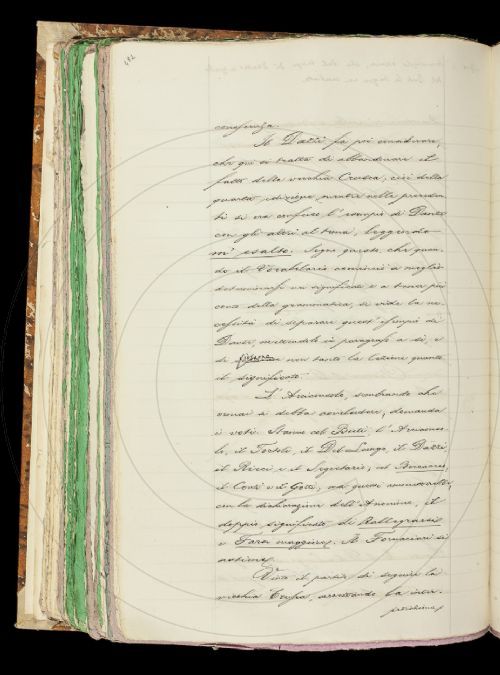 482
conoscenza.
Il Dazzi fa poi considerare,
che qui si tratta di abbandonare il
fatto della vecchia Crusca, cioè della
quarta, mentre nelle preceden-
ti si era confuso l'esempio di Dante
con gli altri al tema, leggendo
m'esalto. Segue questo, che quan-
do il Vocabolario cominciò a meglio
determinare un significato e a tener più
conto della grammatica, si vide la ne-
cessità di separare quest'esempio di
Dante, mettendolo in paragrafo a sè, e
di non tanto la lezione quanto
il significato.
L'Arciconsolo, sembrando che
ormai si debba concludere, domanda
i voti. Stanno col Buti l'Arciconso-
lo, il Tortoli, il Del Lungo, il Dazzi
il Ricci, e il Segretario; col
il Conti e il Gotti, ma questi
con la dichiarazione dell'Anonimo, il
doppio significato di Rallegrarsi
e Farsi maggiore. Il Fornaciari si
astiene.
Vinto il partito di seguire la
vecchia Crusca,